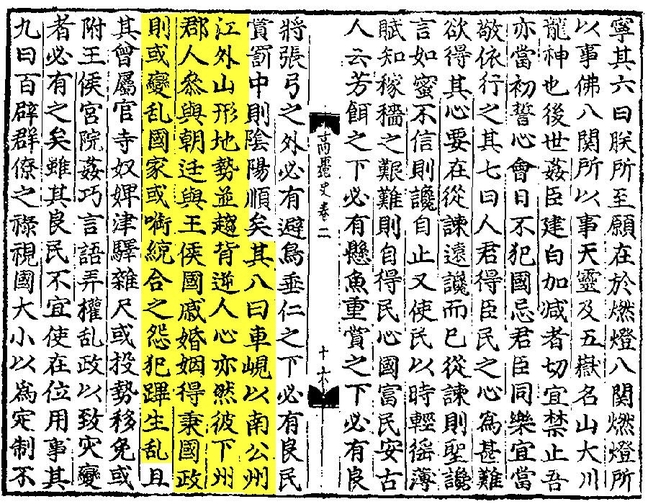 寧其六曰朕所至願在於燃燈八關燃燈所
以事佛八關所以事天靈及五嶽名山大川
龍神也後世姦臣建白加減者切宜禁止吾
亦當初誓心會日不犯國忌君臣同樂宜當
敬依行之其七曰人君得臣民之心爲甚難
欲得其心要在從諫遠讒而已從諫則聖讒
言如蜜不信則讒自止又使民以時輕徭薄
賦知稼穡之艱難則自得民心國富民安古
人云芳餌之下必有懸魚重賞之下必有良
高麗史卷二
十六
將張弓之外必有避鳥垂仁之下必有良民
賞罰中則陰陽順矣其八曰車峴以南公州
江外山形地勢並趨背逆人心亦然彼下州
郡人參與朝廷與王侯國戚婚姻得秉國政
則或變乱國家或㗸統合之怨犯蹕生乱且
其曾屬官寺奴婢津驛雜尺或投勢移免或
附王侯宮院姦巧言語弄權乱政以致灾變
者必有之矣雖其良民不宜使在位用事其
九曰百辟群僚之祿視國大小以爲定制不